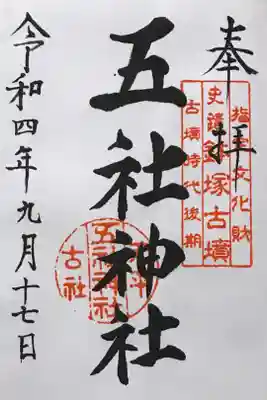 奉拝
指定文化財
史蹟鉢塚古墳
古墳時代後期
五社神社
五社神社
古社
令和四年九月十七日